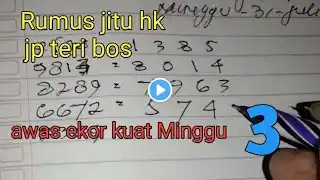 Minggu - 31 - juli
Rumus jitu hk
1 3 8 5
jp teri bos
= 8 0 1 4
8289 = 7 9 6 3
6672 = 5 7 4
awas ekor kuat Minggu
3